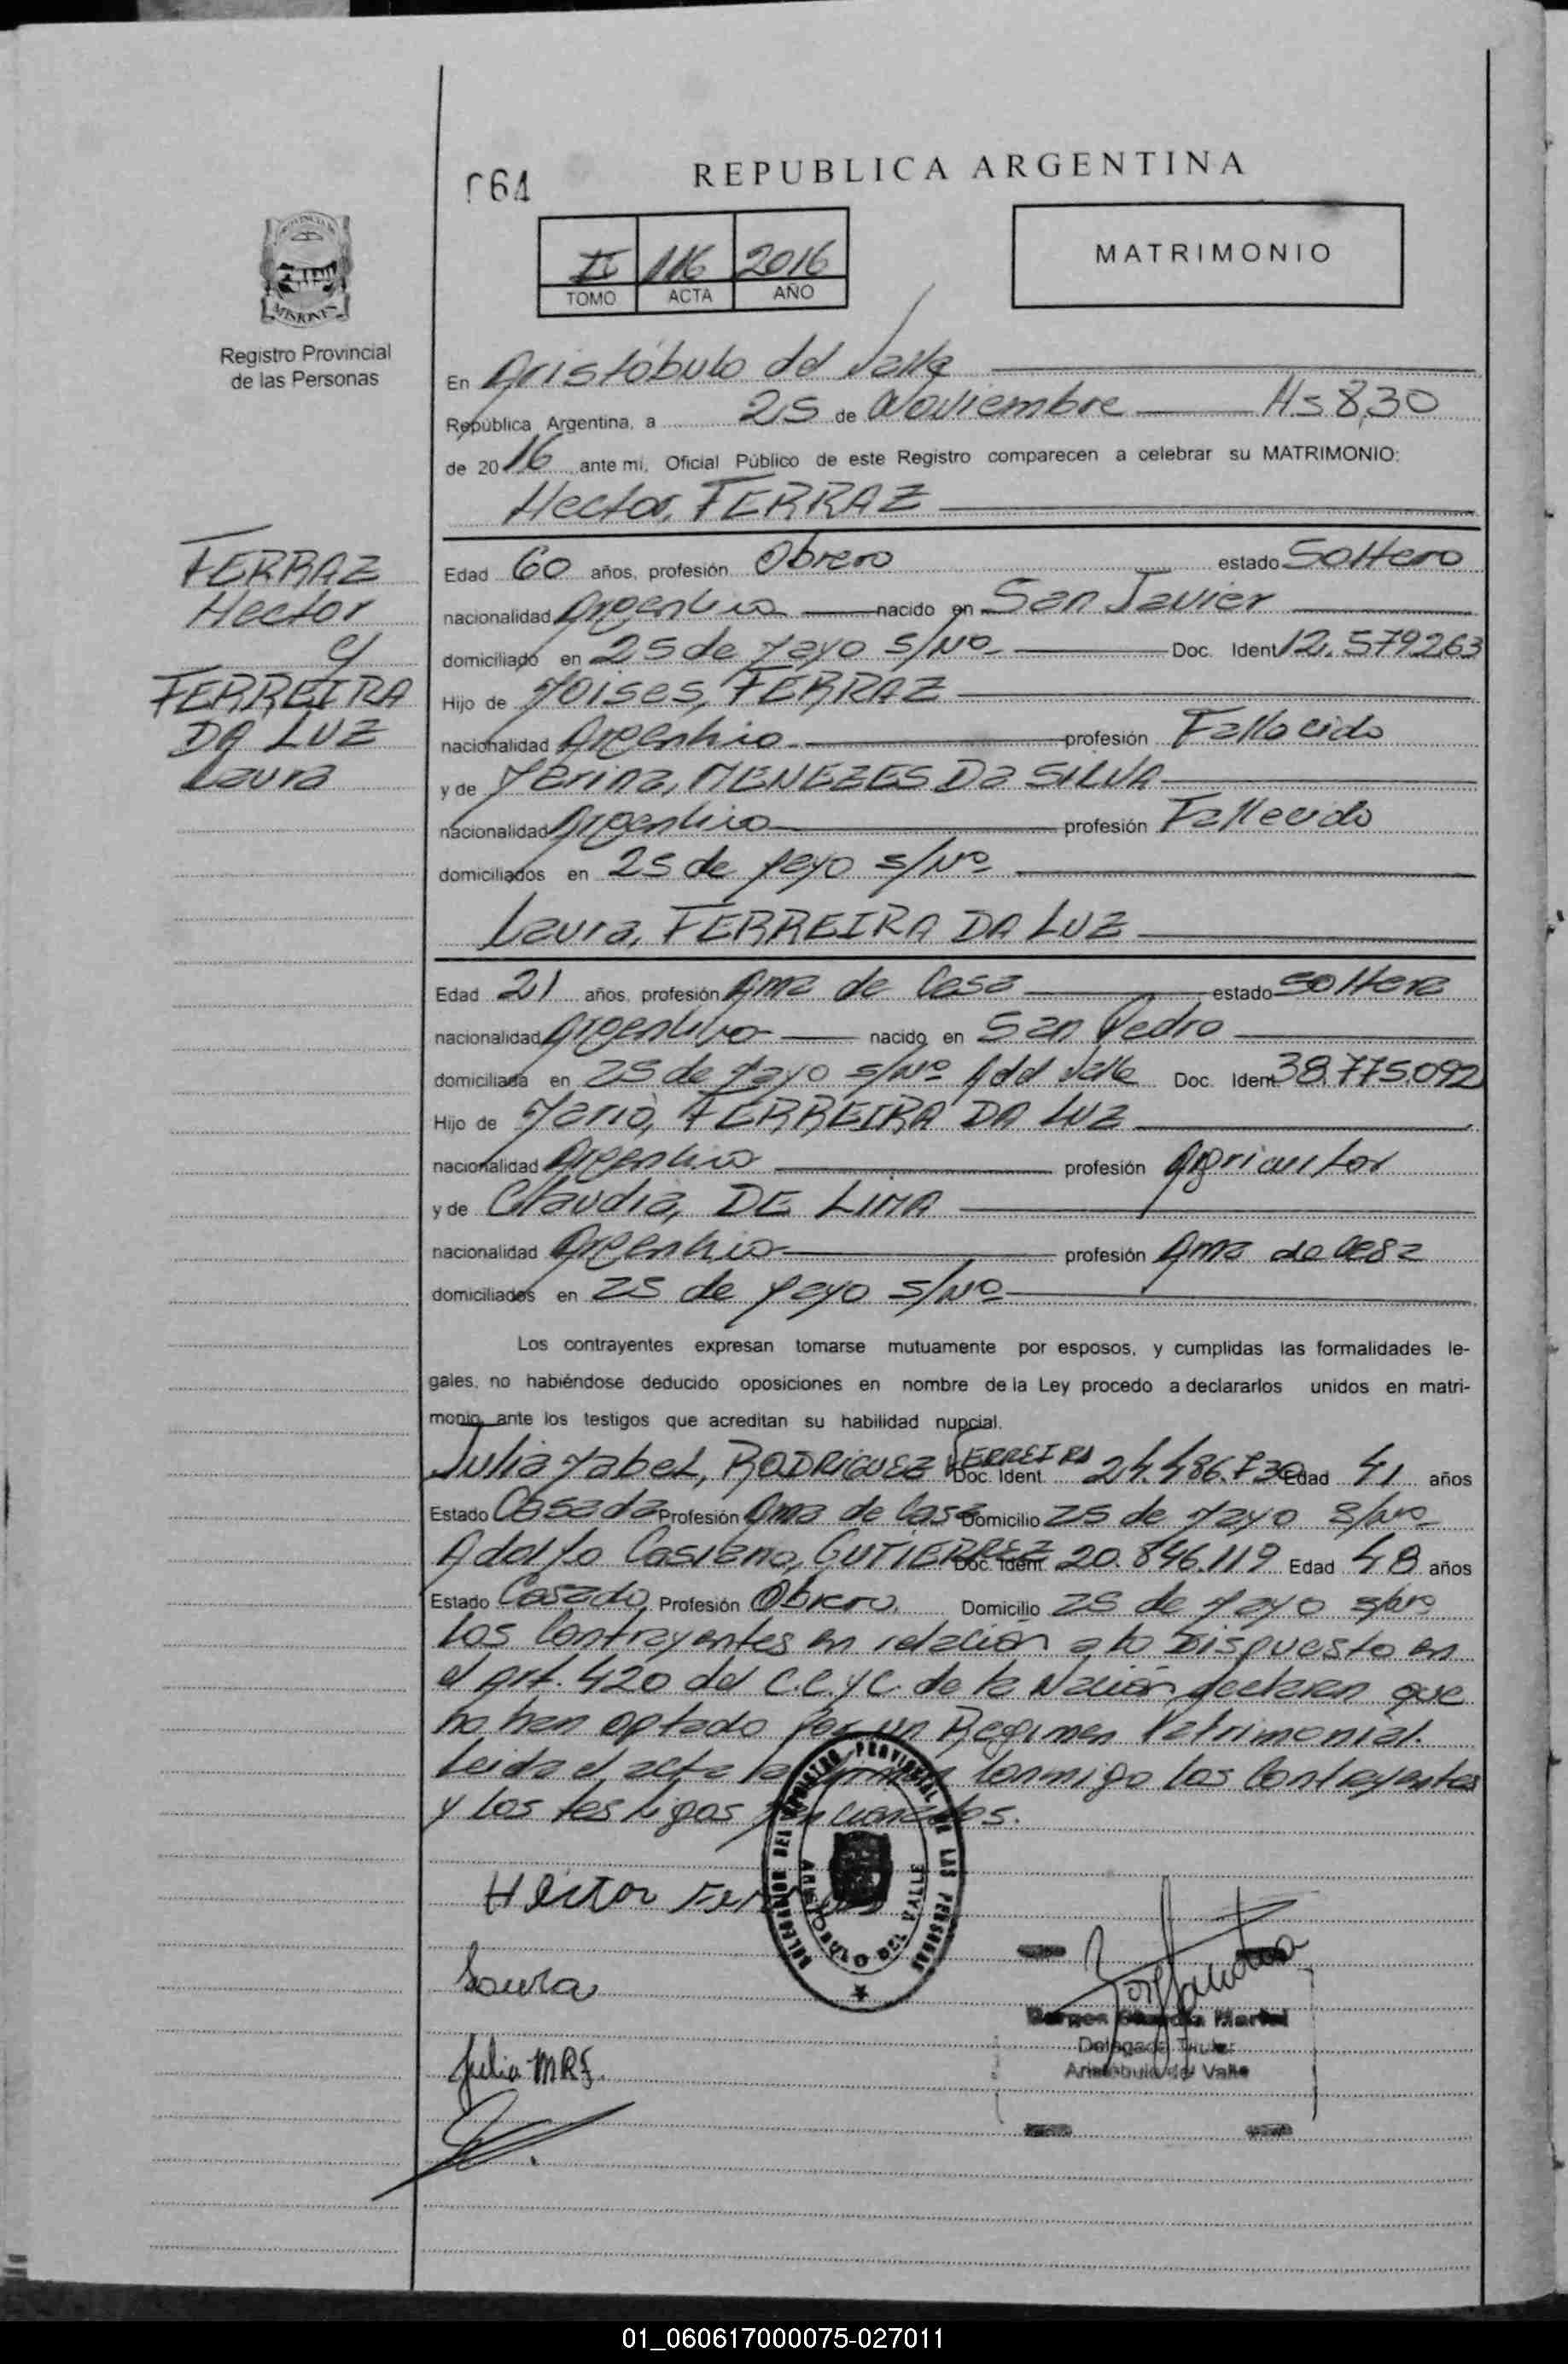 064
REPUBLICA ARGENTINA
MATRIMONIO
II 116 2016
TOMO ACTA AÑO
PROVINCIA DE
MISIONES
Registro Provincial
de las Personas
En Aristóbulo del Valle
República Argentina, a 25 de Noviembre Hs 8,30
de 2016 ante mi, Oficial Público de este Registro comparecen a celebrar su MATRIMONIO:
Hector, FERRAZ
FERRAZ
Hector
y
FERREIRA
DA LUZ
Laura
Edad 60 años, profesión Obrero estado Soltero
nacionalidad Argentino nacido en San Javier
domiciliado en 25 de Mayo S/Nº Doc. Ident 12.579263
Hijo de Moises, FERRAZ
nacionalidad Argentino profesión Fallecido
y de Marina, MENEZES Da SILVA
nacionalidad Argentino profesión Fallecido
domiciliados en 25 de Mayo S/Nº
Laura, FERREIRA DA LUZ
Edad 21 años, profesión Ama de Casa estado soltera
nacionalidad Argentino nacido en San Pedro
domiciliada en 25 de Mayo S/Nº A del Valle Doc. Ident 38.775.092
Hijo de Mario, FERREIRA DA LUZ
nacionalidad Argentino profesión Agricultor
y de Claudia, DE LIMA
nacionalidad Argentino profesión Ama de Casa
domiciliados en 25 de Mayo S/Nº
Los contrayentes expresan tomarse mutuamente por esposos, y cumplidas las formalidades le-
gales, no habiéndose deducido oposiciones en nombre de la Ley procedo a declararlos unidos en matri-
monio ante los testigos que acreditan su habilidad nupcial.
Julia Mabel, RODRIGUEZ FERREIRA Doc. Ident. 24.486.730 Edad 41 años
Estado Casada Profesión Ama de Casa Domicilio 25 de Mayo S/Nº
Adolfo Casiano, GUTIERREZ Doc. Ident. 20.846.119 Edad 48 años
Estado Casado Profesión Obrero. Domicilio 25 de Mayo S/Nº
Los Contrayentes en relación a lo Dispuesto en
el Art. 420 del C.C. y C. de la Nación declaran que
no han optado por un Regimen Patrimonial.
Leida el acta la firman conmigo los Contrayentes
y los testigos mencionados.
DELEGACION DEL REGISTRO PROVINCIAL DE LAS PERSONAS
ARISTOBULO DEL VALLE
Hector Ferraz
Laura
Julia MRF.
Delegada Titular
Aristobulo del Valle
01_060617000075-027011